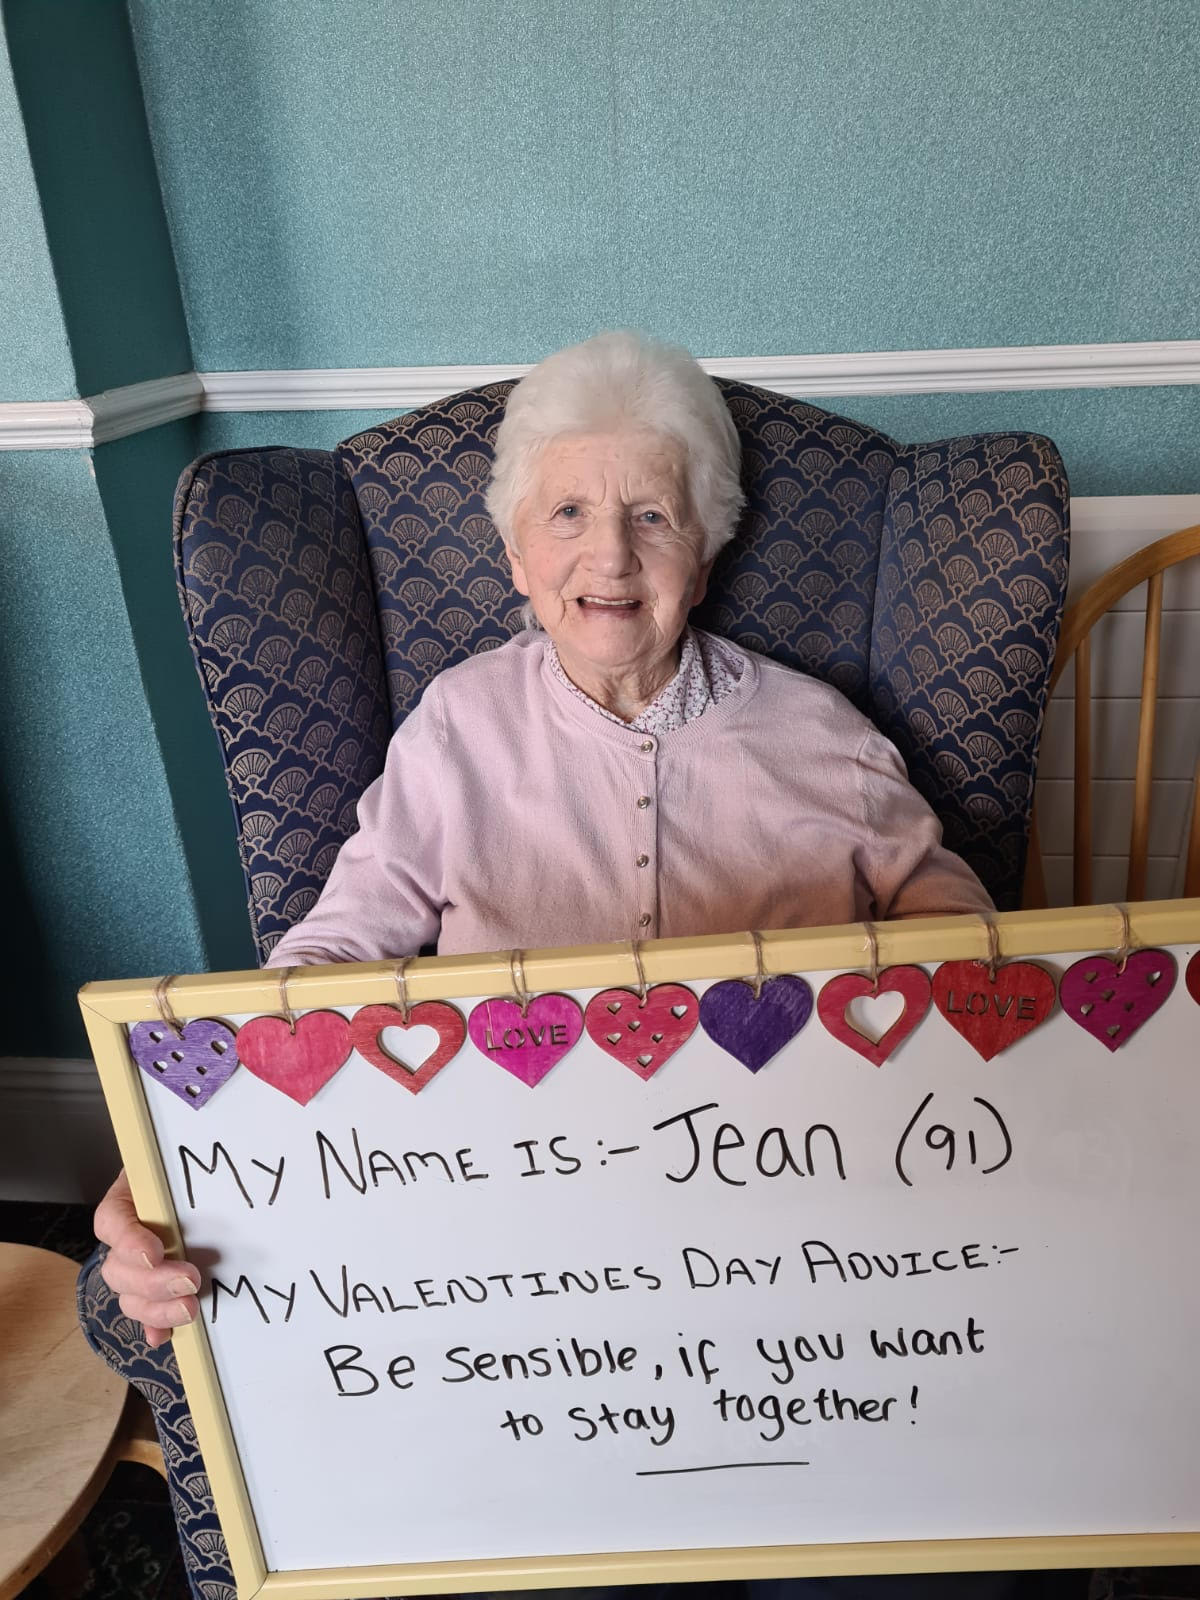 LOVE
LOVE
MY NAME IS:- Jean (91)
MY VALENTINES DAY ADVICE:-
Be sensible, if you want
to stay together!